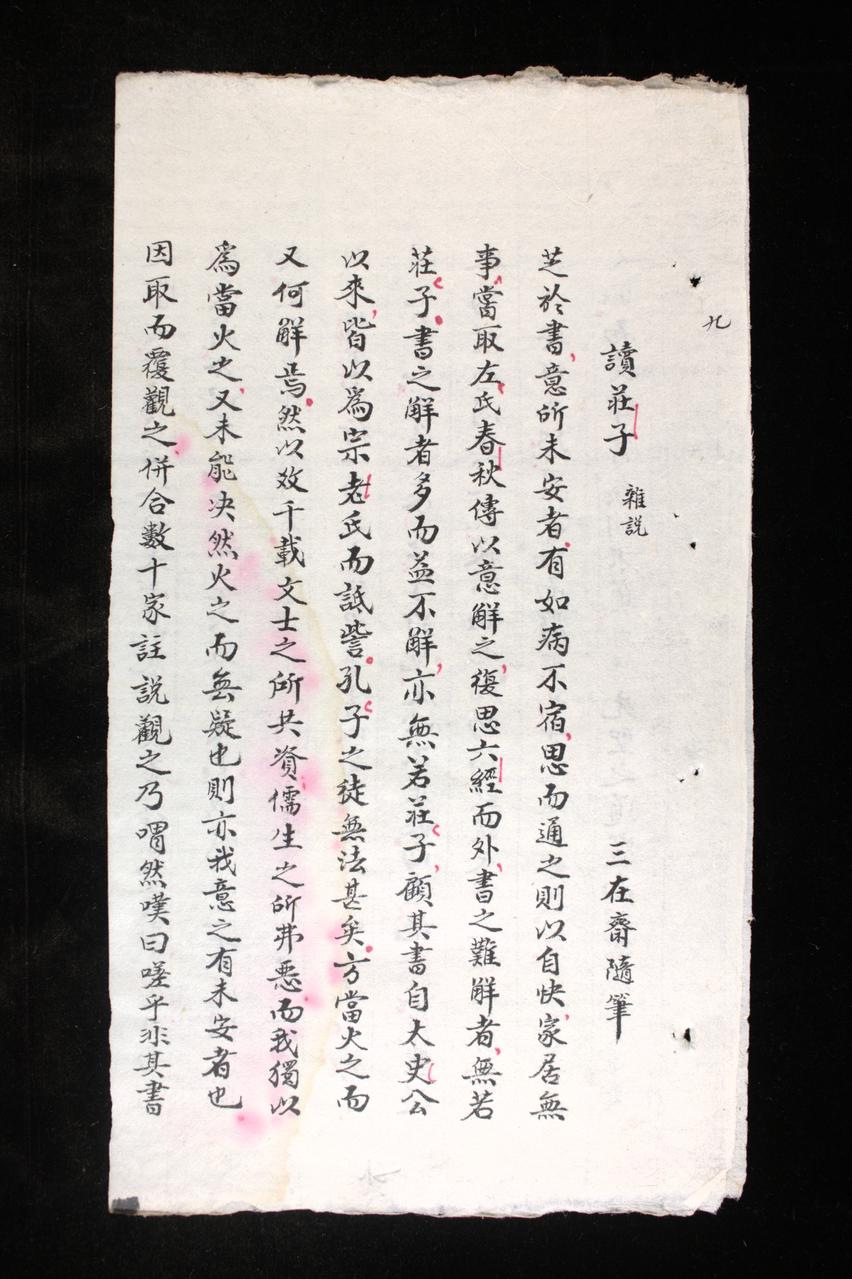 九
讀莊子 雜説 三在齋隨筆
芝於書意所未安者有如病不宿思而通之則以自快家居無
事嘗取左氏春秋傳以意解之復思六經而外書之難解者無若
莊子書之解者多而益不解亦無若莊子顧其書自太史公
以來皆以爲宗老氏而詆訾孔子之徒無法甚矣方當火之而
又何解焉然以效千載文士之所共資儒生之所弗惡而我獨以
爲當火之又未能决然火之而無疑也則亦我意之有未安者也
因取而覆觀之併合數十家註説觀之乃喟然嘆曰嗟乎非其書